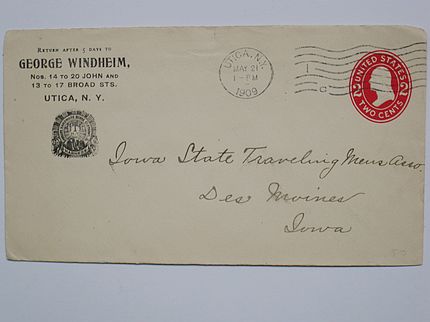 Return after 5 days to
GEORGE WINDHEIM,
Nos. 14 to 20 JOHN AND
13 to 17 BROAD STS.
UTICA, N. Y.
UTICA, N.Y.
MAY 21
1 - PM
1909
UNITED STATES
2 2
TWO CENTS
Iowa State Traveling Mens Asso.
Des Moines
Iowa